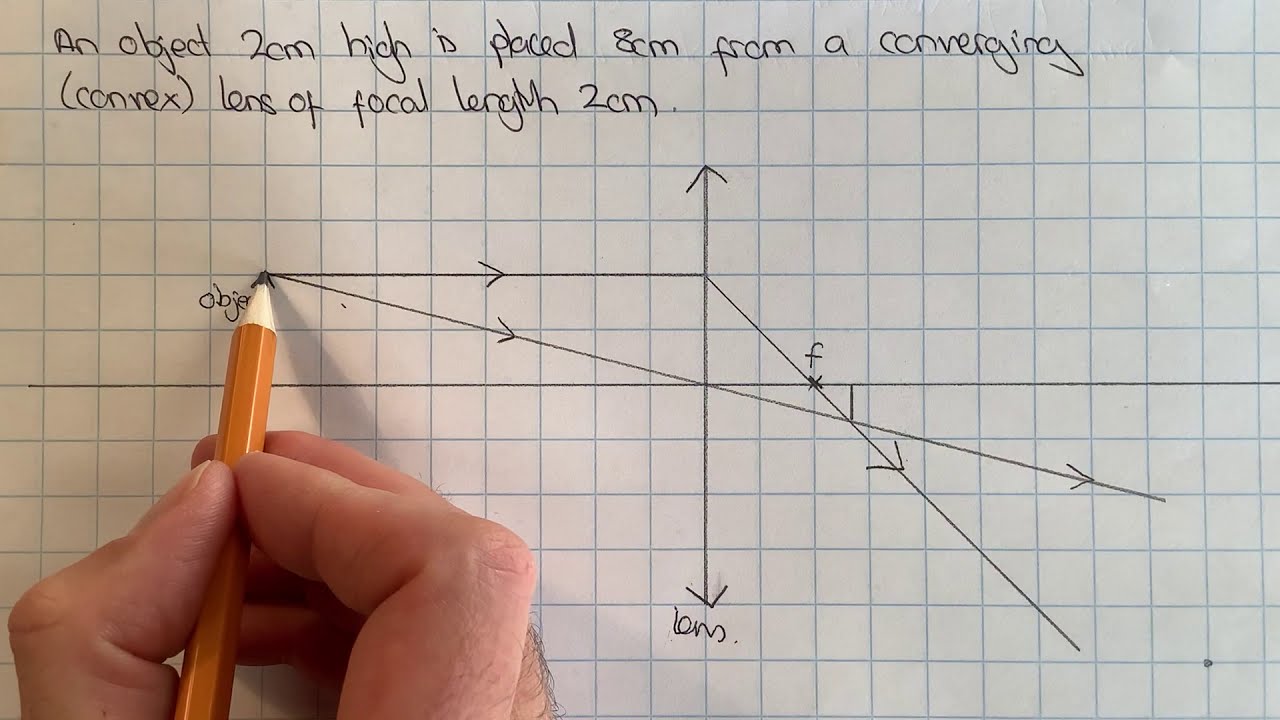 An object 2cm high is placed 8cm from a converging
(convex) lens of focal length 2cm.
f
obje
lens.